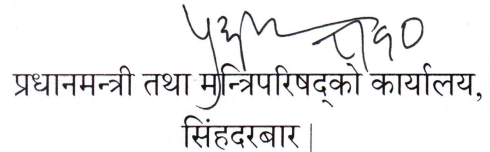 प्रधानमन्त्री तथा मन्त्रिपरिषद्को कार्यालय,
सिंहदरबार |